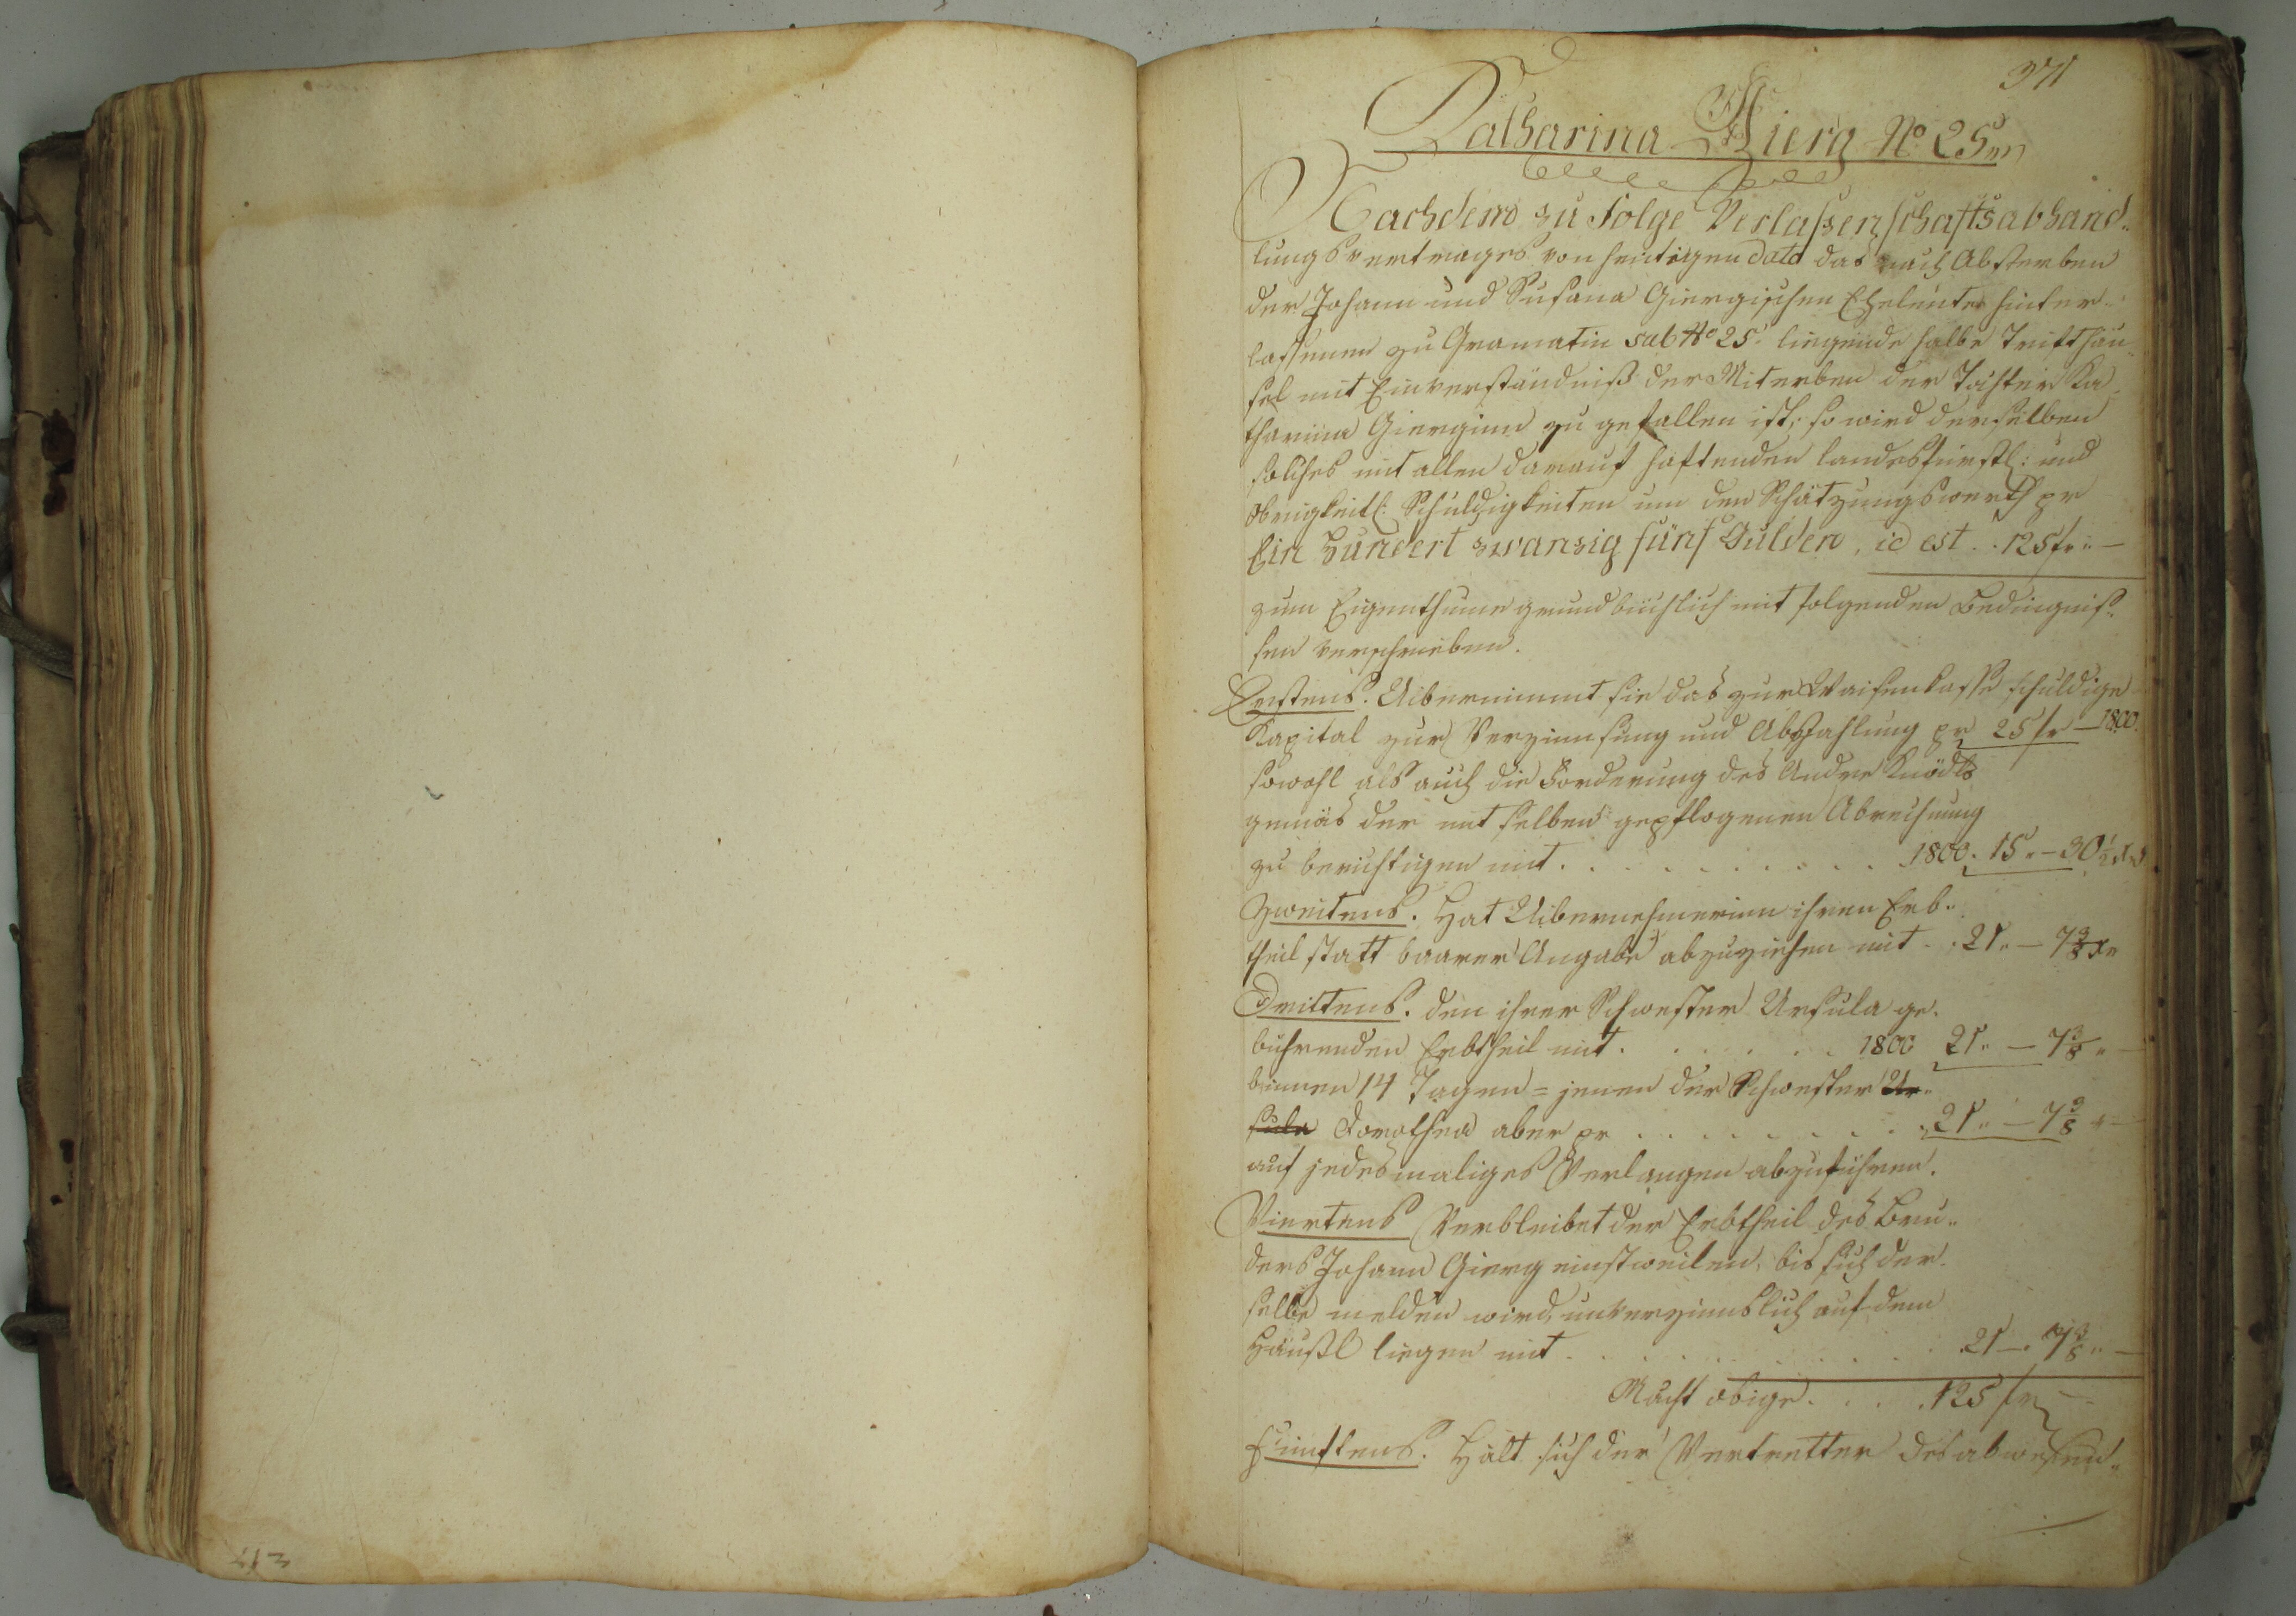 371
Catharina Gierg No 25
Nachdem zu Folge Verlaßenschaftsabhand„
lungsvertrages von heutigen dato das nach Absterben
der Johann und Susana Giergischen Eheleute hinter„
lassenen zu Gramatin sub No 25. liegende halbe Trifthäu„
sel mit Einverständniß der Miterben der Tochter Ka„
tharina Gierginn zu gefallen ist; so wird derselben
solches mit allen darauf haftenden landesfürstl: und
obrigkeitl: Schuldigkeiten um den Schätzungswerth pr
Ein Hundert zwanzig fünf Gulden, id est . . 125 fr „ —
zum Eigenthume grundbüchlich mit folgenden Bedingniß„
sen verschrieben.
Erstens. Uibernimmt sie das zur Waisenkasse schuldige
Kapital zur Verzinnsung und Abzahlung pr 25 fr — 1800.
sowohl als auch die Forderung des Andre Knödls
gemäs der mit selben gepflogenen Abrechnung
zu berichtigen mit . . . . . . . . . 1800. 15 „ — 30 1/2
Zweitens. Hat Uibernehmerinn ihren Erb„
theil statt baarer Angabe abzuziehen mit . . 21 „ — 7 3/8 xr
Drittens. den ihrer Schwester Ursula ge„
buhrenden Erbtheil mit . . . . . . 1800 21 „ — 7 3/8 „ —
binnen 14 Tagen = jenen der Schwester Ur„
sula Dorothea aber pr . . . . . . . . 21 „ — 7 3/8 „ —
auf jedesmaliges Verlangen abzuführen.
Viertens Verbleibet der Erbtheil des Bru„
ders Johann Gierg einstweilen, bis sich der„
selbe melden wird, unverzinnslich auf dem
Häußl liegen mit . . . . . . . . . 21 — 7 3/8 „ —
Macht obige . . . . 125 fr —
Fünftens. Hält sich der Vertretter des abwesend„